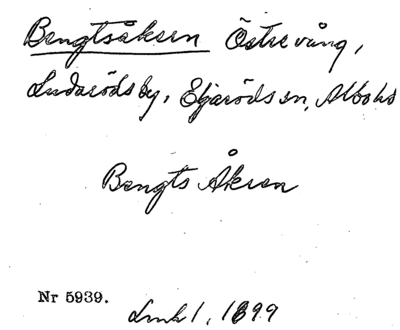 Bengtsåkern Östre vång,
Ludaröds by, Eljaröds sn, Albo hd
Bengts Åkren
Nr 5939.
Lmk 1, 1699